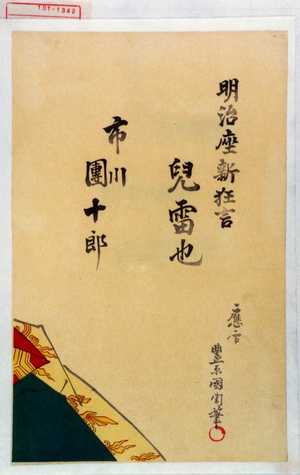 明治座新狂言
兒雷也
市川
團十郎
應需
豊原國周筆
101-1340